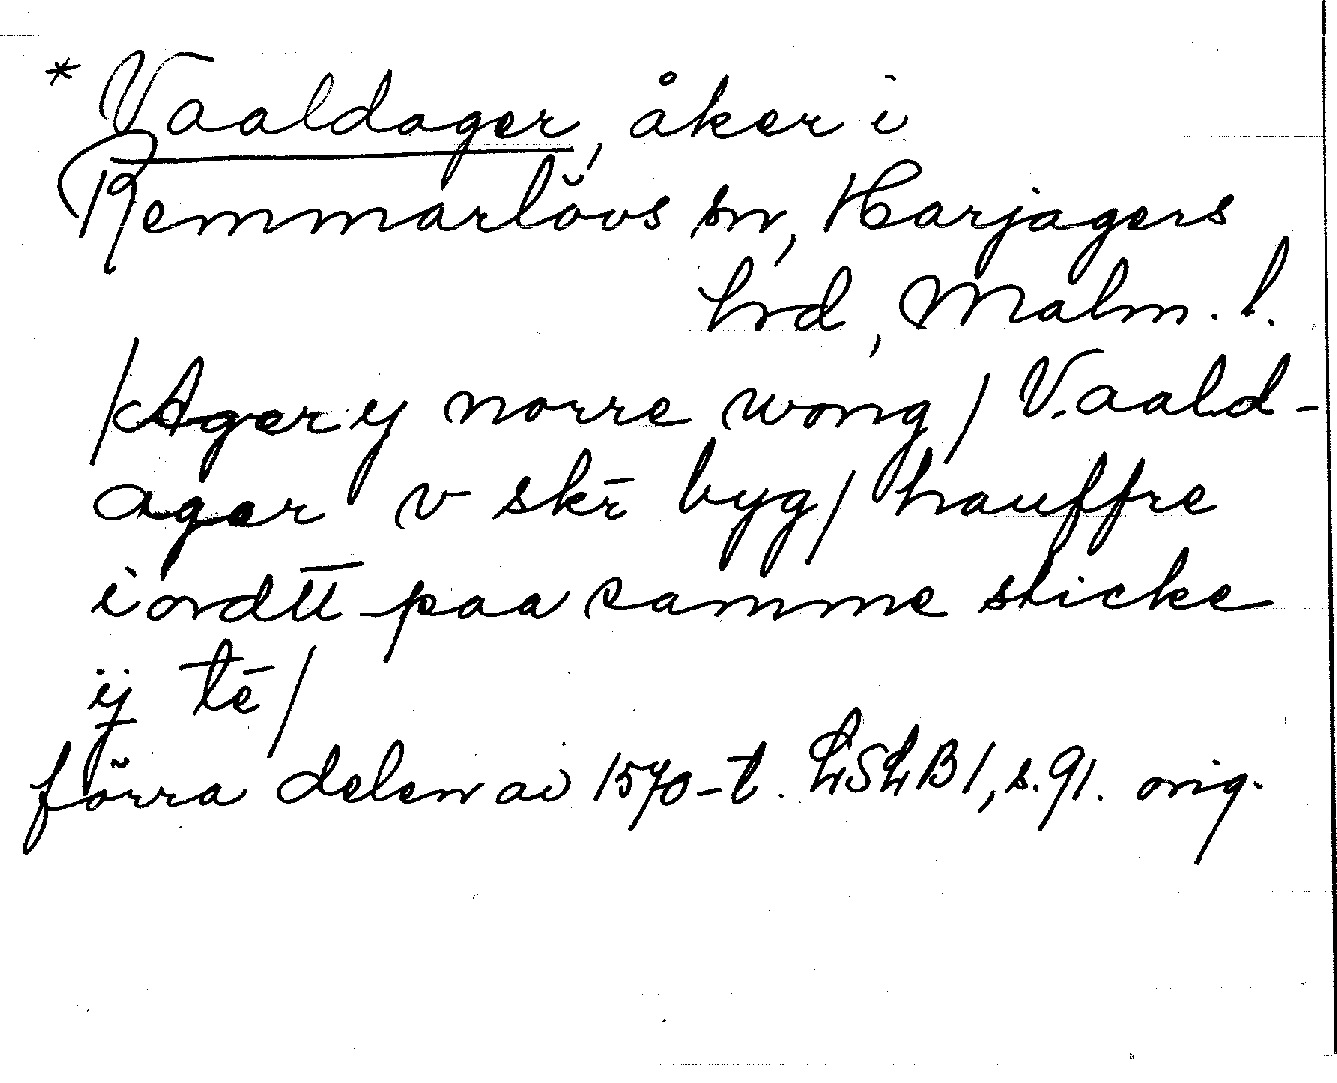 * Vaaldager, åker i
Remmarlövs sn, Harjagers
hrd, Malm. l.
/Ager y norre wong/ Vaald-
ager v skr̄ byg/ hauffre
i ordtt paa samme sticke
ij tē/
förra delen av 1570-t. LSLB 1, s. 91. orig.